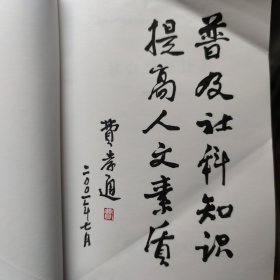 普及社科知识
提高人文素质
费孝通
二〇〇二年七月